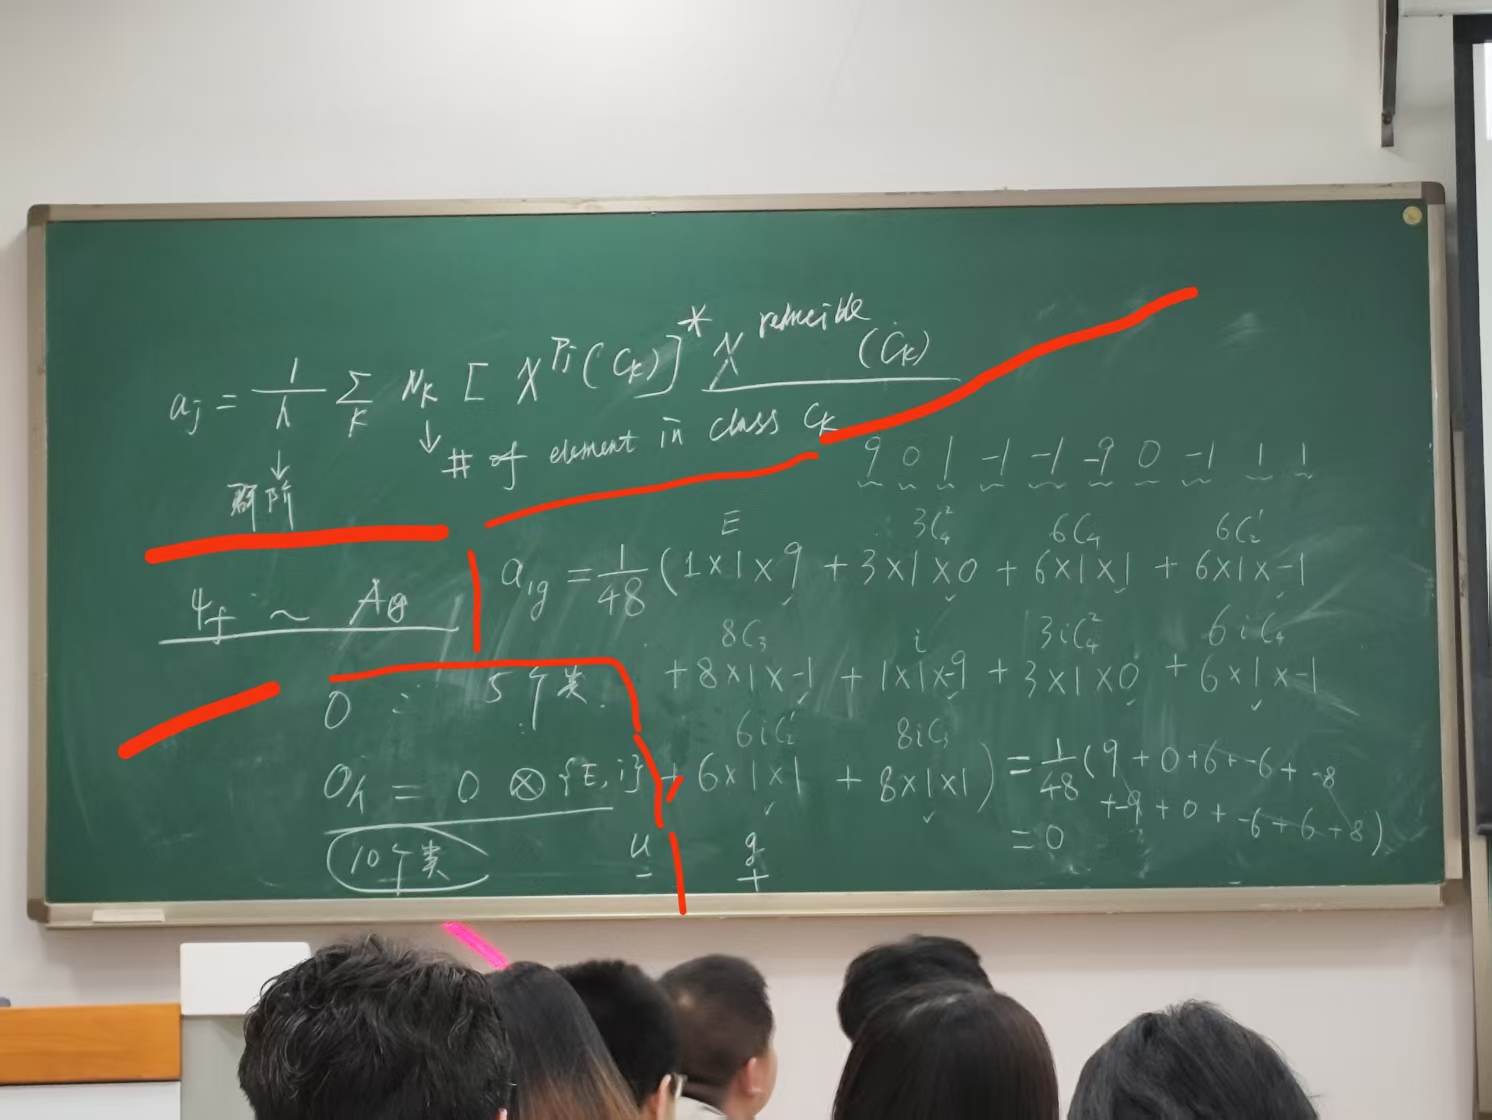 a_j = 1/h Σ_K N_K [ χ^{Γj}(C_K) ]^* χ^{reducible}(C_K)
↓ # of element in class C_K
↓
群阶
9 0 1 -1 -1 -9 0 -1 1 1
ψ_f ~ A_{1g}
E 3C_4^2 6C_4 6C_2'
a_{1g} = 1/48 (1×1×9 + 3×1×0 + 6×1×1 + 6×1×-1
8C_3 i 3iC_4^2 6iC_4
+ 8×1×-1 + 1×1×-9 + 3×1×0 + 6×1×-1
6iC_2' 8iC_3
+ 6×1×1 + 8×1×1) = 1/48 (9 + 0 + 6 + -6 + -8
+ -9 + 0 + -6 + 6 + 8)
= 0
O : 5个类
O_h = O ⊗ {E, i}
10个类
u g
- +